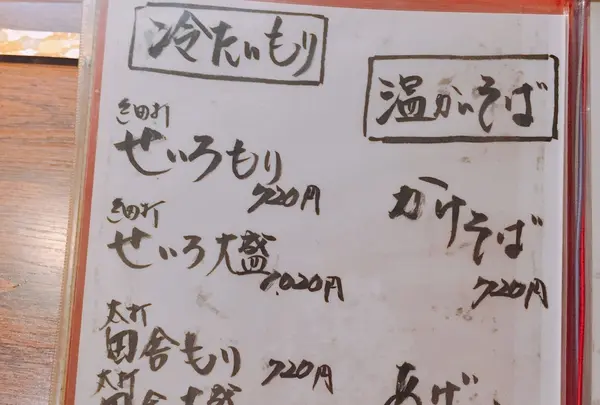 冷たいもり
細打
せいろもり
720円
細打
せいろ大盛
1,020円
太打
田舎もり 720円
太打
田舎大盛
温かいそば
かけそば
720円
あげ